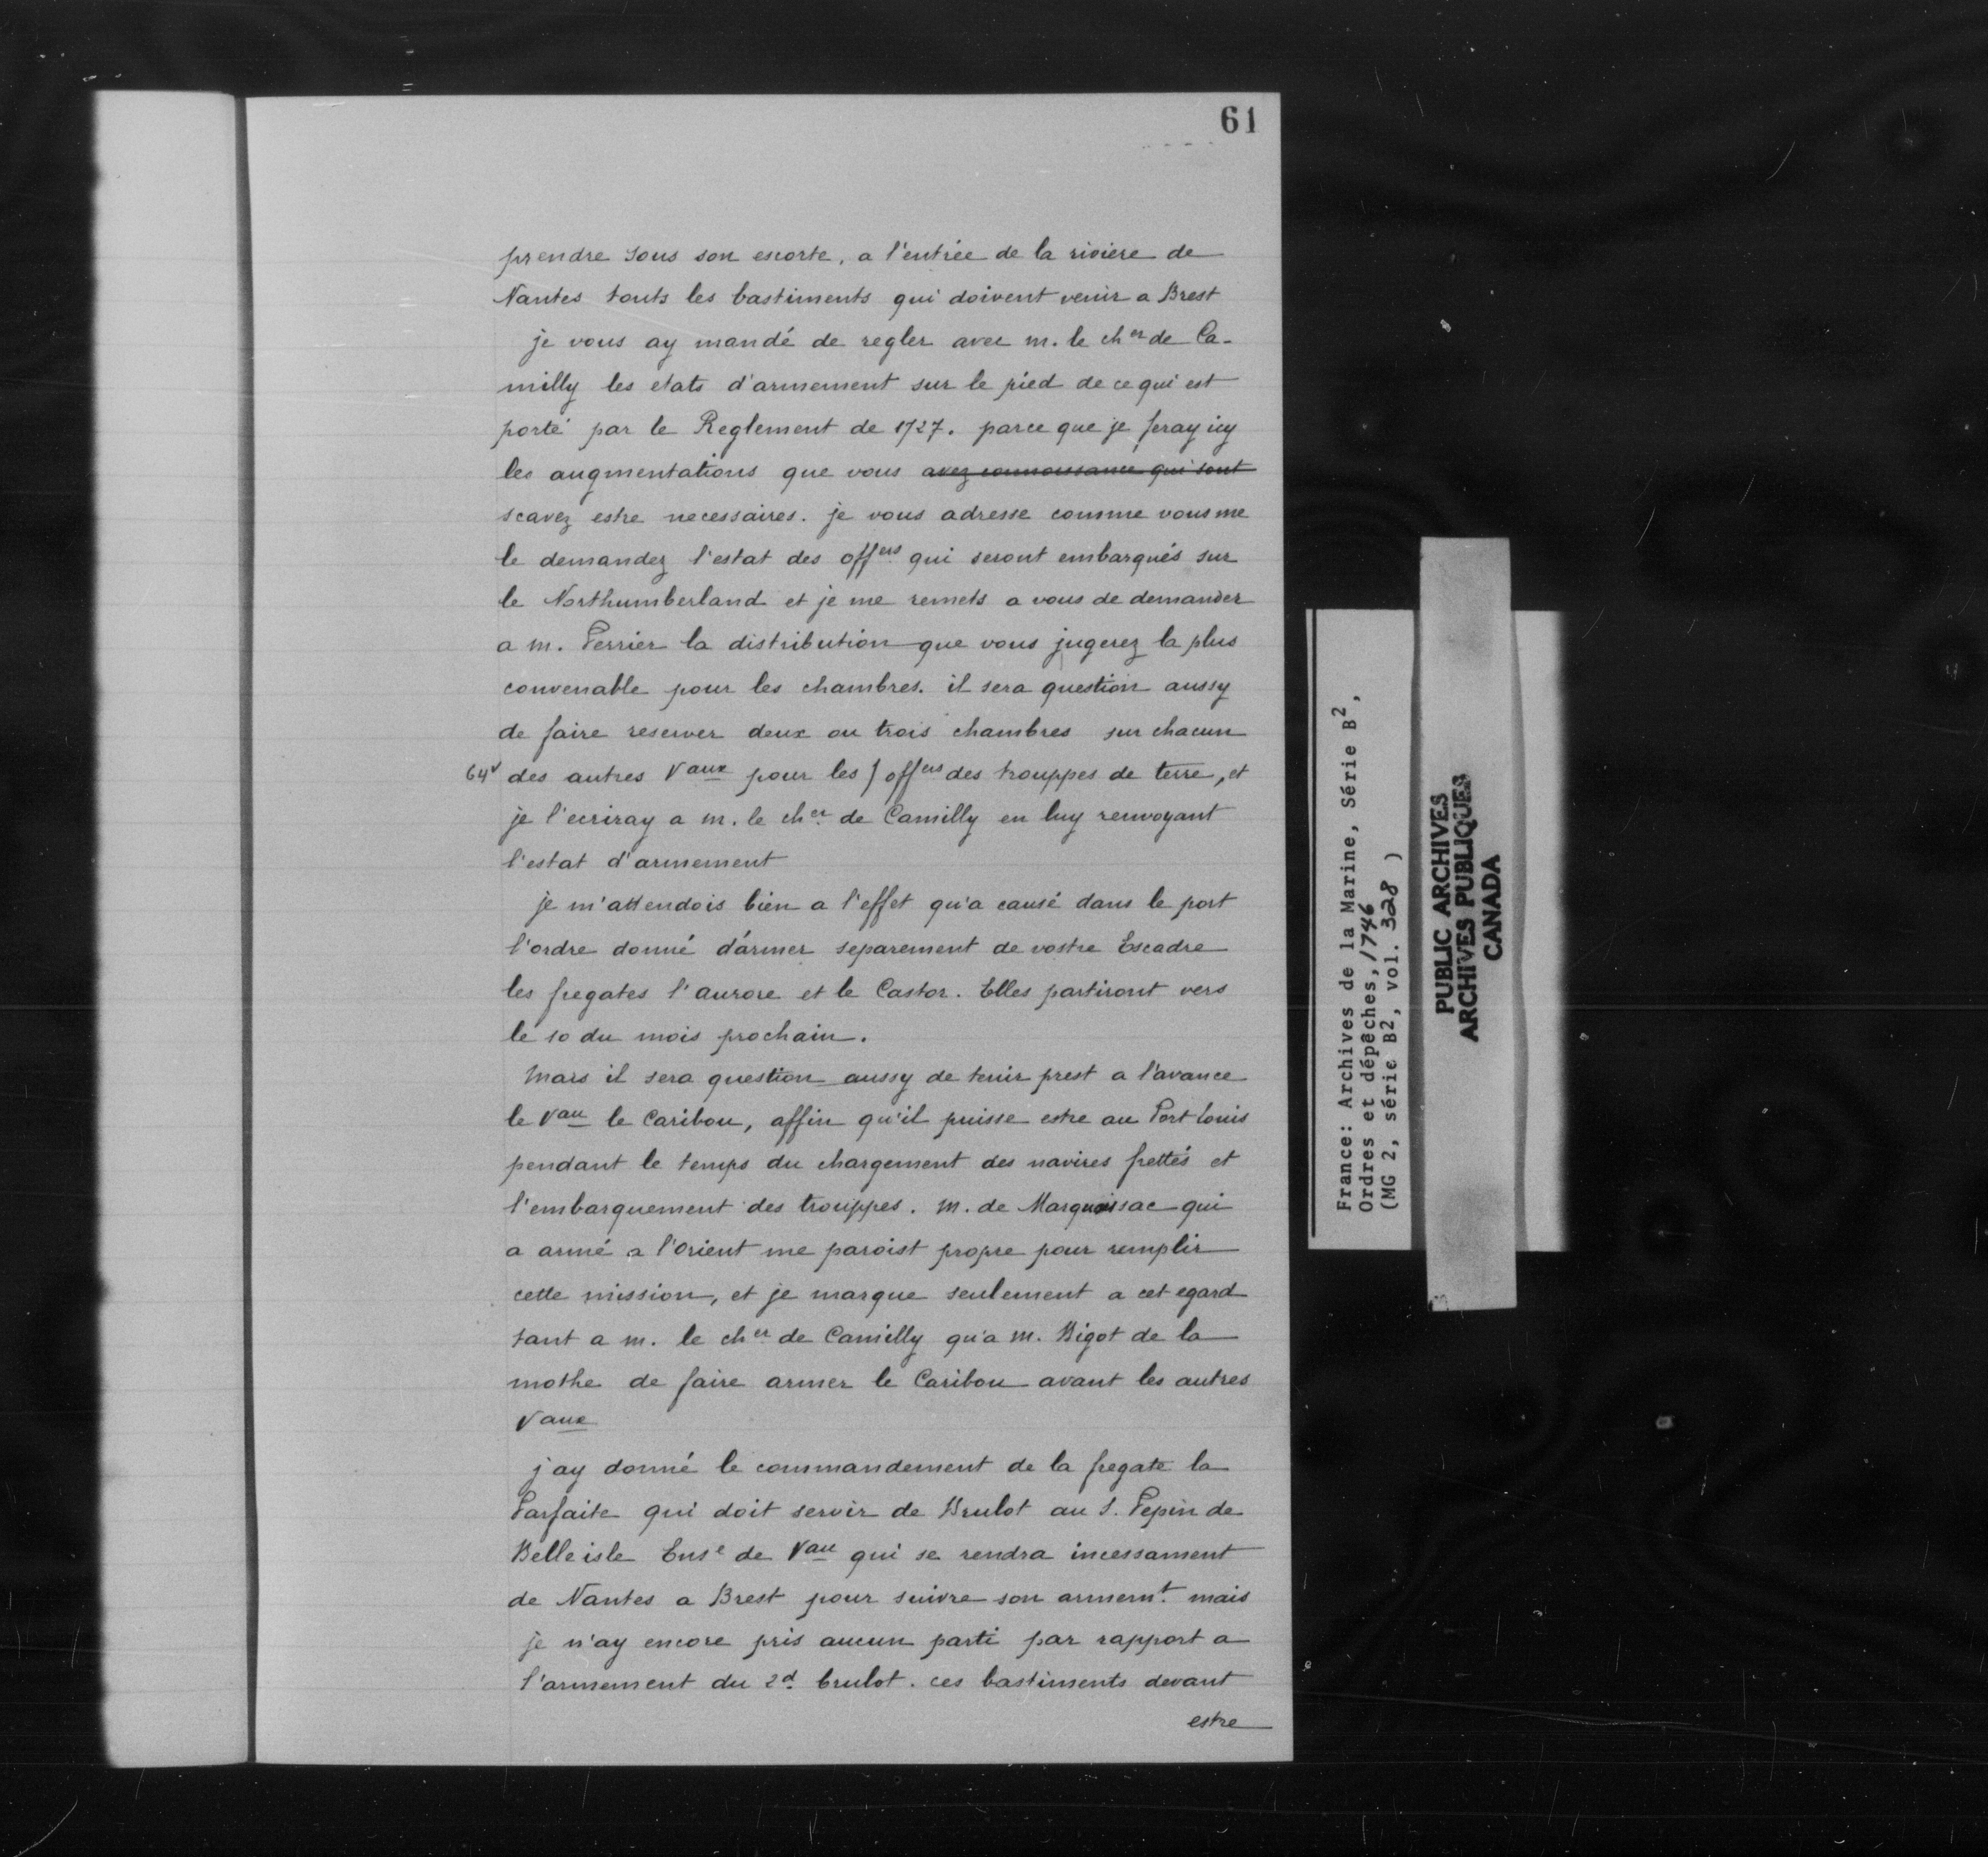 61
prendre sous son escorte, a l'entrée de la riviere de
Nantes touts les bastiments qui doivent venir a Brest
je vous ay mandé de regler avec m. le cher de Ca-
milly les etats d'armement sur le pied de ce qui est
porté par le Reglement de 1727. parce que je feray icy
les augmentations que vous avez connoissance qui sont
scavez estre necessaires. je vous adresse comme vous me
le demandez l'estat des offers qui seront embarqués sur
le Northumberland et je me remets a vous de demander
a m. Perrier la distribution que vous jugerez la plus
convenable pour les chambres. il sera question aussy
de faire reserver deux ou trois chambres sur chacun
64v des autres Vaux pour les / offers des trouppes de terre, et
je l'ecriray a m. le cher de Camilly en luy renvoyant
l'estat d'armement
je m'attendois bien a l'effet qu'a causé dans le port
l'ordre donné d'armer separement de vostre Escadre
les fregates l'aurore et le Castor. Elles partiront vers
le 10 du mois prochain.
Mais il sera question aussy de tenir prest a l'avance
le Vau le Caribou, affin qu'il puisse estre au Port Louis
pendant le temps du chargement des navires frettés et
l'embarquement des trouppes. M. de Marquaissac qui
a armé a l'Orient me paroist propre pour remplir
cette mission, et je marque seulement a cet egard
tant a m. le cher de Camilly qu'a M. Bigot de la
mothe de faire armer le Caribou avant les autres
Vaux
j'ay donné le commandement de la fregate la
Parfaite qui doit servir de Brulot au S. Pepin de
Belleisle Ense de Vau qui se rendra incessament
de Nantes a Brest pour suivre son armemt. mais
je n'ay encore pris aucun parti par rapport a
l'armement du 2d. brulot. ces bastiments devant
estre
France: Archives de la Marine, Série B2,
Ordres et dépêches, 1746
(MG 2, série B2, vol. 328 )
PUBLIC ARCHIVES
ARCHIVES PUBLIQUES
CANADA